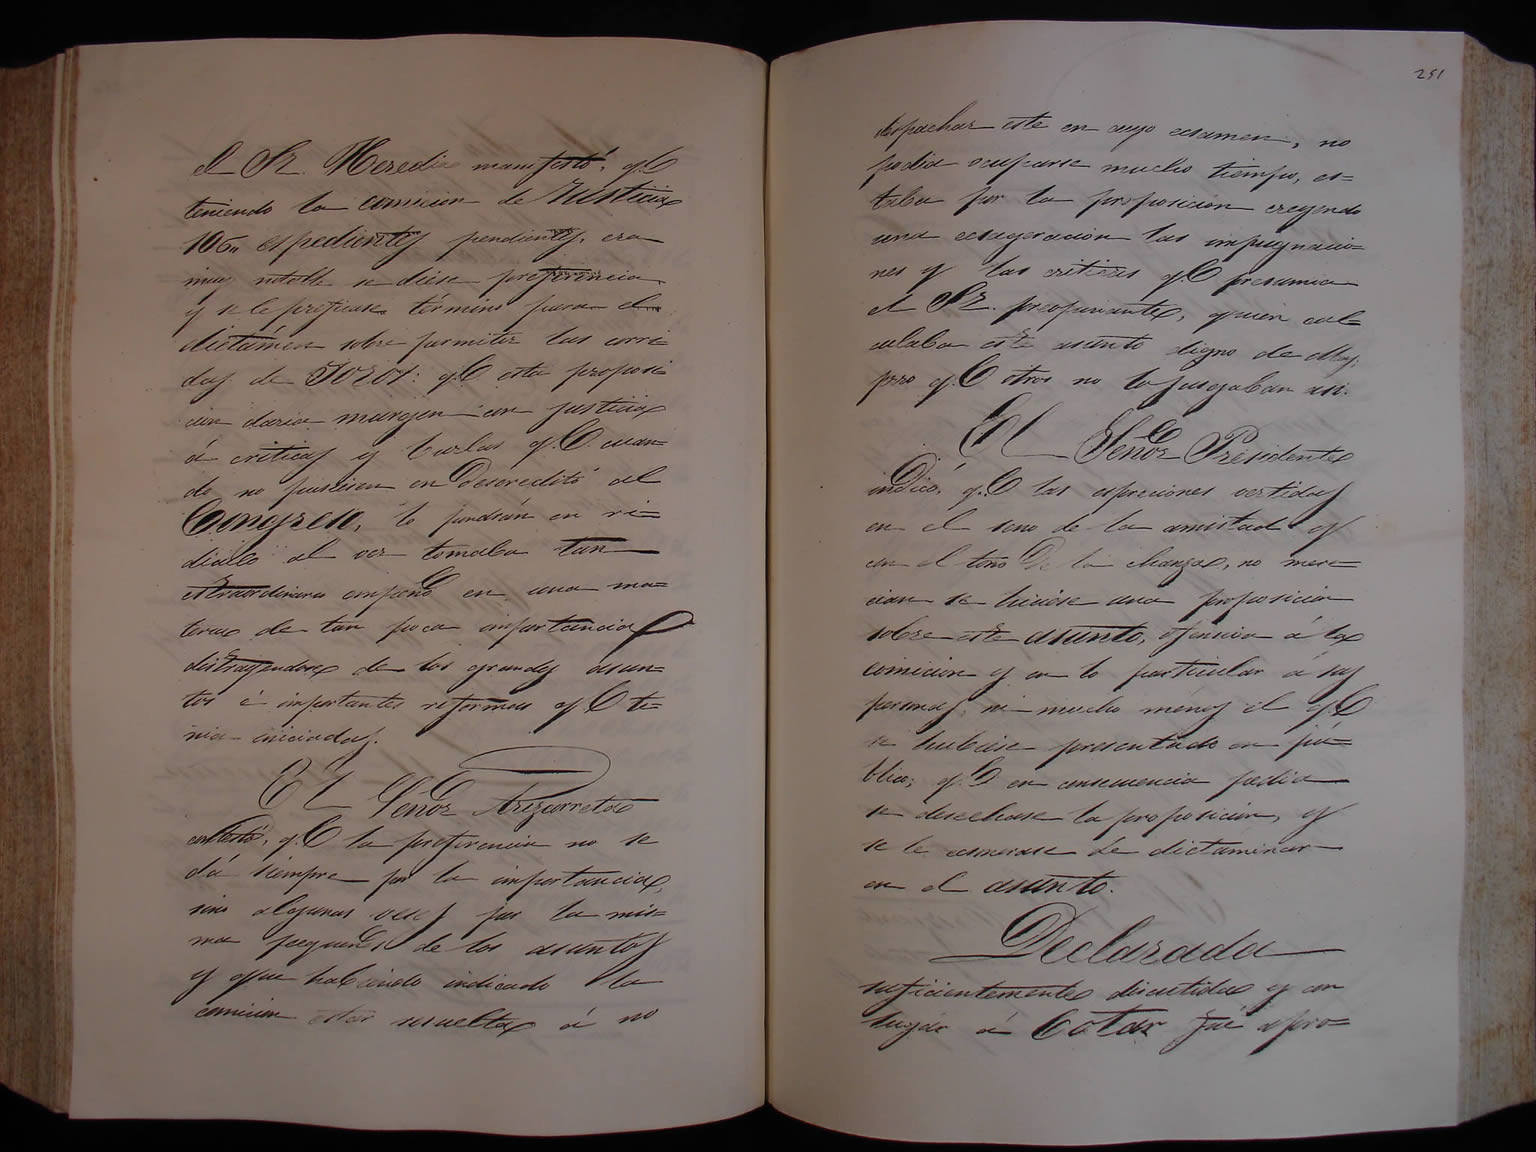 el Sr. Heredia manifestó, q.e
teniendo la comicion de Justicia
106,, espedientes pendientes, era
muy notable se diese preferencia,
y se le prefijase término para el
dictámen sobre permitir las corri-
das de Toros: q.e esta proposi-
cion daria margen con justicia
á criticas y burlas q.e cuan-
do no pusiesen en Descredito al
Congreso, lo pondrán en ri-
diculo al ver tomaba tan
estraordinario empeño en una ma-
teria de tan poca importancia
distrayendose de los grandes asun-
tos é importantes reformas q.e te-
nia iniciadas.
El Señor Arizcorreta
contestó, q.e la preferencia no se
dá siempre por la importancia,
sino algunas veces por la mis-
ma pequeñes de los asuntos
y que habiendo indicado la
comicion estar resuelta á no
251
despachar este en cuyo ecsamen, no
podia ocuparse mucho tiempo, es-
taba por la proposicion creyendo
una ecsageracion las impugnacio-
nes y las criticas q.e presumia
el Sr. preopinante, quien cal-
culaba este asunto digno de ellas,
pero q.e otros no lo juzgaban asi.
El Señor Presidente
indicó, q.e las espreciones vertidas
en el seno de la amistad y
con el tono De la chanza, no mere-
cian se hiciese una proposicion
sobre este asunto, ofensiva á la
comicion y en lo particular á sus
personas, ni mucho ménos el q.e
se hubiese presentado en pú-
blico; q.e en consecuencia pedia
se desechase la proposicion, y
se le de dictaminar
en el asunto.
Declarada
suficientemente discutida y con
lugar á votar fué apro-